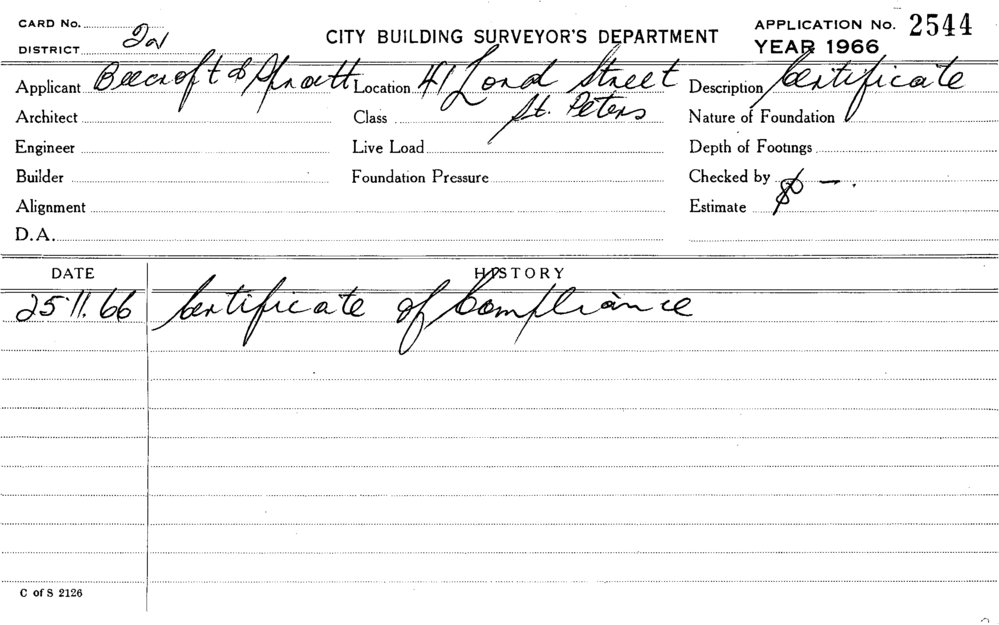 CARD No.
DISTRICT
CITY BUILDING SURVEYOR'S DEPARTMENT
APPLICATION No. 2544
YEAR 1966
Applicant Beecroft & Location 41 Lord Street Description Certificate
Architect Class St. Peters Nature of Foundation
Engineer Live Load Depth of Footings
Builder Foundation Pressure Checked by
Alignment Estimate $ —.
D.A.
DATE HISTORY
25.11.66 Certificate of Compliance
C of S 2126